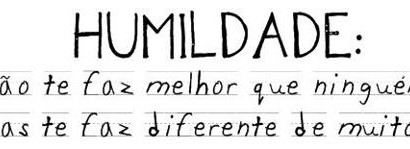 HUMILDADE:
ão te faz melhor que ningué
as te faz diferente de muito